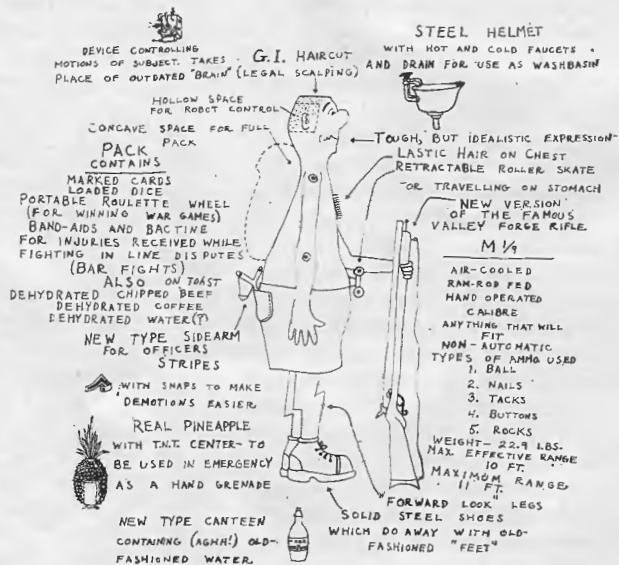 DEVICE CONTROLLING
MOTIONS OF SUBJECT. TAKES
PLACE OF OUTDATED "BRAIN"
G.I. HAIRCUT
(LEGAL SCALPING)
STEEL HELMET
WITH HOT AND COLD FAUCETS
AND DRAIN FOR USE AS WASHBASIN
HOLLOW SPACE
FOR ROBOT CONTROL
CONCAVE SPACE FOR FULL
PACK
TOUGH, BUT IDEALISTIC EXPRESSION
LASTIC HAIR ON CHEST
RETRACTABLE ROLLER SKATE
OR TRAVELLING ON STOMACH
PACK
CONTAINS
MARKED CARDS
LOADED DICE
PORTABLE ROULETTE WHEEL
(FOR WINNING WAR GAMES)
BAND-AIDS AND BACTINE
FOR INJURIES RECEIVED WHILE
FIGHTING IN LINE DISPUTES
(BAR FIGHTS)
ALSO ON TOAST
DEHYDRATED CHIPPED BEEF
DEHYDRATED COFFEE
DEHYDRATED WATER(?)
NEW TYPE SIDEARM
FOR OFFICERS
STRIPES
WITH SNAPS TO MAKE
DEMOTIONS EASIER
REAL PINEAPPLE
WITH T.N.T. CENTER- TO
BE USED IN EMERGENCY
AS A HAND GRENADE
NEW TYPE CANTEEN
CONTAINING (AGHH!) OLD-
FASHIONED WATER
NEW VERSION
OF THE FAMOUS
VALLEY FORGE RIFLE
M 1/9
AIR-COOLED
RAM-ROD FED
HAND OPERATED
CALIBRE
ANYTHING THAT WILL
FIT
NON-AUTOMATIC
TYPES OF AMMO USED
1. BALL
2. NAILS
3. TACKS
4. BUTTONS
5. ROCKS
WEIGHT- 22.9 LBS.
MAX. EFFECTIVE RANGE
10 FT.
MAXIMUM RANGE
11 FT.
"FORWARD LOOK" LEGS
SOLID STEEL SHOES
WHICH DO AWAY WITH OLD-
FASHIONED "FEET"